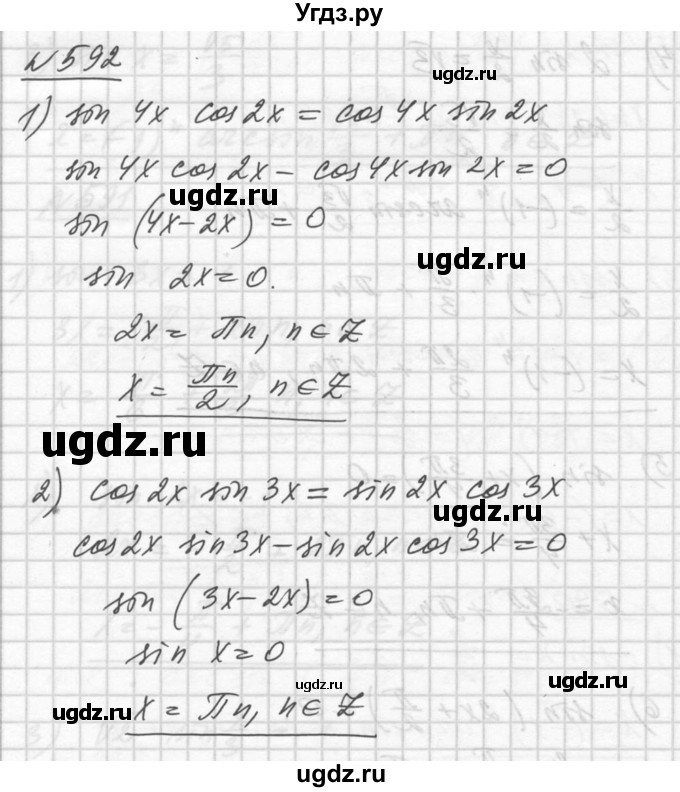 Угдз.ру
№592
1) sin 4x cos 2x = cos 4x sin 2x
sin 4x cos 2x - cos 4x sin 2x = 0
sin (4x - 2x) = 0
sin 2x = 0.
2x = Πn, n ∈ Z
x = Πn/2, n ∈ Z
2) cos 2x sin 3x = sin 2x cos 3x
cos 2x sin 3x - sin 2x cos 3x = 0
sin (3x - 2x) = 0
sin x = 0
x = Πn, n ∈ Z
ugdz.ru
ugdz.ru
ugdz.ru
ugdz.ru
ugdz.ru
ugdz.ru
ugdz.ru
ugdz.ru
ugdz.ru